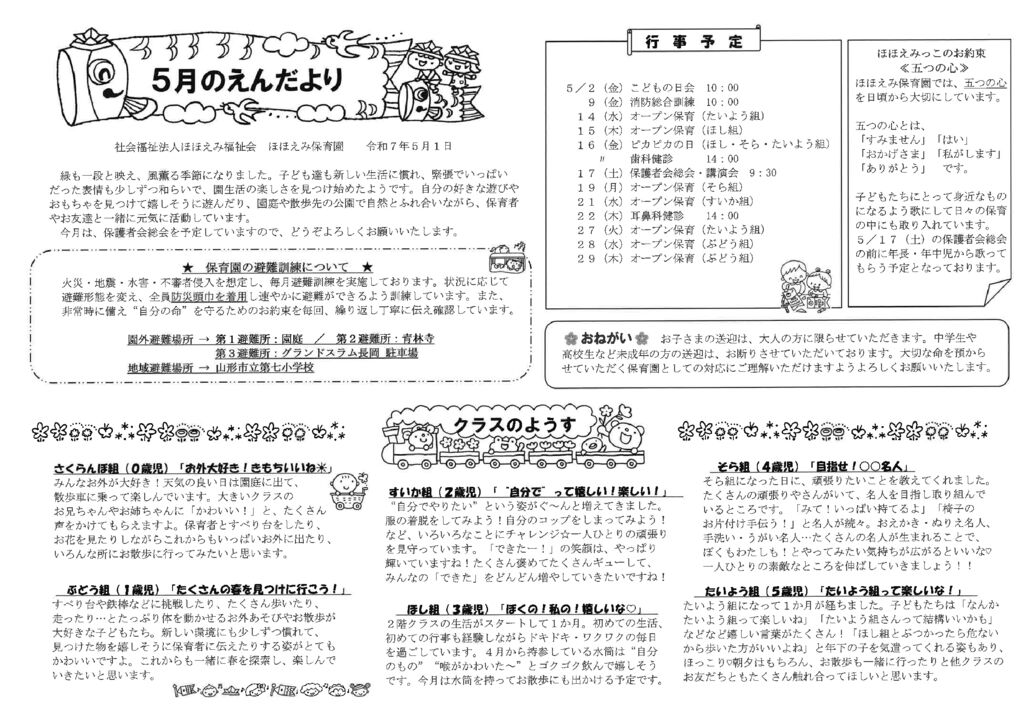 5月のえんだより
社会福祉法人ほほえみ福祉会　ほほえみ保育園　　令和7年5月1日
緑も一段と映え、風薫る季節になりました。子ども達も新しい生活に慣れ、緊張でいっぱい
だった表情も少しずつ和らいで、園生活の楽しさを見つけ始めたようです。自分の好きな遊びや
おもちゃを見つけて嬉しそうに遊んだり、園庭や散歩先の公園で自然とふれ合いながら、保育者
やお友達と一緒に元気に活動しています。
今月は、保護者会総会を予定していますので、どうぞよろしくお願いいたします。
★　保育園の避難訓練について　★
火災・地震・水害・不審者侵入を想定し、毎月避難訓練を実施しております。状況に応じて
避難形態を変え、全員防災頭巾を着用し速やかに避難ができるよう訓練しています。また、
非常時に備え“自分の命”を守るためのお約束を毎回、繰り返し丁寧に伝え確認しています。
園外避難場所 → 第1避難所：園庭　／　第2避難所：青林寺
第3避難所：グランドスラム長岡 駐車場
地域避難場所 → 山形市立第七小学校
行事予定
5／2（金）こどもの日会　10：00
9（金）消防総合訓練　10：00
14（水）オープン保育（たいよう組）
15（木）オープン保育（ほし組）
16（金）ピカピカの日（ほし・そら・たいよう組）
〃　歯科健診　　14：00
17（土）保護者会総会・講演会　9：30
19（月）オープン保育（そら組）
21（水）オープン保育（すいか組）
22（木）耳鼻科健診　　14：00
27（火）オープン保育（たいよう組）
28（水）オープン保育（ぶどう組）
29（木）オープン保育（ぶどう組）
ほほえみっこのお約束
≪五つの心≫
ほほえみ保育園では、五つの心
を日頃から大切にしています。
五つの心とは、
「すみません」「はい」
「おかげさま」「私がします」
「ありがとう」　です。
子どもたちにとって身近なもの
になるよう歌にして日々の保育
の中にも取り入れています。
5／17（土）の保護者会総会
の前に年長・年中児から歌って
もらう予定となっております。
おねがい　お子さまの送迎は、大人の方に限らせていただきます。中学生や
高校生など未成年の方の送迎は、お断りさせていただいております。大切な命を預から
せていただく保育園としての対応にご理解いただけますようよろしくお願いいたします。
クラスのようす
さくらんぼ組（0歳児）「お外大好き！きもちいいね☀」
みんなお外が大好き！天気の良い日は園庭に出て、
散歩車に乗って楽しんでいます。大きいクラスの
お兄ちゃんやお姉ちゃんに「かわいい！」と、たくさん
声をかけてもらえますよ。保育者とすべり台をしたり、
お花を見たりしながらこれからもいっぱいお外に出たり、
いろんな所にお散歩に行ってみたいと思います。
ぶどう組（1歳児）「たくさんの春を見つけに行こう！」
すべり台や鉄棒などに挑戦したり、たくさん歩いたり、
走ったり…とたっぷり体を動かせるお外あそびやお散歩が
大好きな子どもたち。新しい環境にも少しずつ慣れて、
見つけた物を嬉しそうに保育者に伝えたりする姿がとても
かわいいですよ。これからも一緒に春を探索し、楽しんで
いきたいと思います。
すいか組（2歳児）「“自分で”って嬉しい！楽しい！」
“自分でやりたい”という姿がぐ～んと増えてきました。
服の着脱をしてみよう！自分のコップをしまってみよう！
など、いろいろなことにチャレンジ☆一人ひとりの頑張り
を見守っています。「できたー！」の笑顔は、やっぱり
輝いていますね！たくさん褒めてたくさんギューして、
みんなの「できた」をどんどん増やしていきたいですね！
ほし組（3歳児）「ぼくの！私の！嬉しいな♡」
2階クラスの生活がスタートして1か月。初めての生活、
初めての行事も経験しながらドキドキ・ワクワクの毎日
を過ごしています。4月から持参している水筒は“自分
のもの”“喉がかわいた～”とゴクゴク飲んで嬉しそう
です。今月は水筒を持ってお散歩にも出かける予定です。
そら組（4歳児）「目指せ！○○名人」
そら組になった日に、頑張りたいことを教えてくれました。
たくさんの頑張りやさんがいて、名人を目指し取り組んで
いるところです。「みて！いっぱい持てるよ」「椅子の
お片付け手伝う！」と名人が続々。おえかき・ぬりえ名人、
手洗い・うがい名人…たくさんの名人が生まれることで、
ぼくもわたしも！とやってみたい気持ちが広がるといいな♡
一人ひとりの素敵なところを伸ばしていきましょう！！
たいよう組（5歳児）「たいよう組って楽しいな！」
たいよう組になって1か月が経ちました。子どもたちは「なんか
たいよう組って楽しいね」「たいよう組さんって結構いいかも」
などなど嬉しい言葉がたくさん！「ほし組とぶつかったら危ない
から歩いた方がいいよね」と年下の子を気遣ってくれる姿もあり、
ほっこり♡朝夕はもちろん、お散歩も一緒に行ったりと他クラスの
お友だちともたくさん触れ合ってほしいと思います。